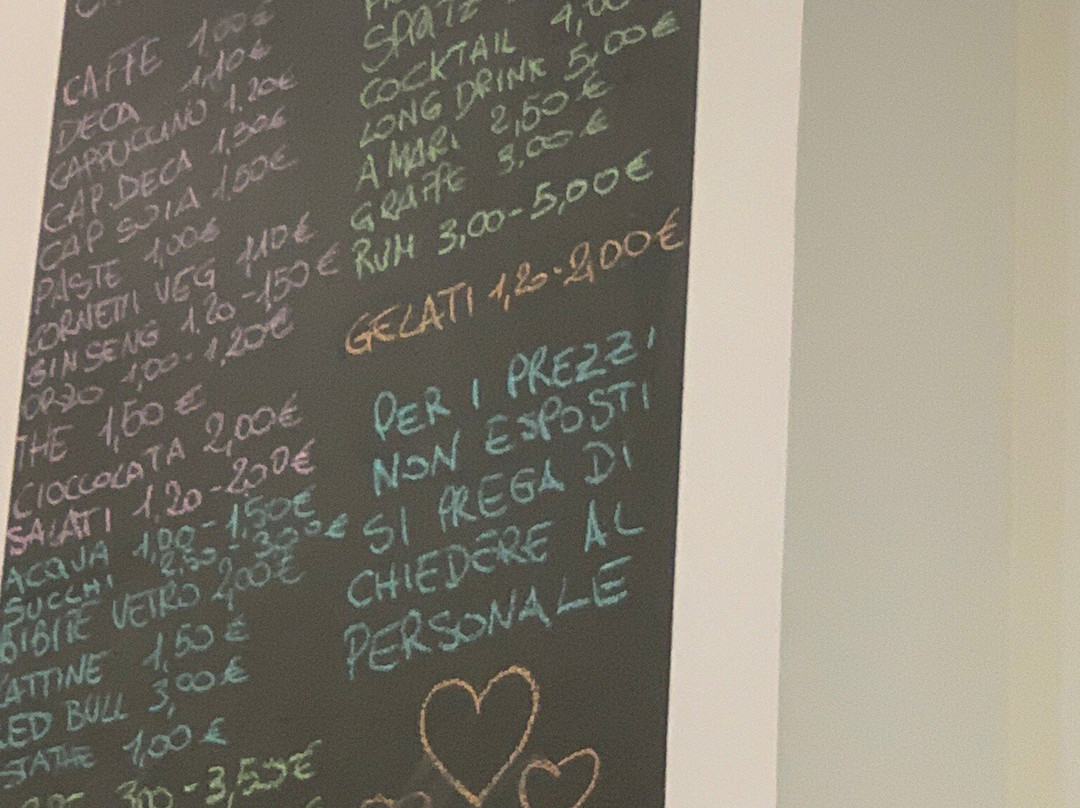 CAFFE 1,00€
DECA 1,10€
CAPPUCCINO 1.20€
CAP. DECA 1,30€
CAP SOIA 1,50€
PASTE 1,00€
CORNETTI VEG 1,10€
GINSENG 1.20-1,50€
ORZO 1,00-1,20€
THE 1,50€
CIOCCOLATA 2,00€
SALATI 1,20-2,00€
ACQUA 1,00-1,50€
SUCCHI 2,50-3,00€
BIBITE VETRO 2,00€
LATTINE 1,50€
RED BULL 3,00€
ESTATHE 1,00€
3,00-3,50€
SPRITZ
COCKTAIL 4,00
LONG DRINK 5,00€
AMARI 2,50€
GRAPPE 3,00€
RUM 3,00-5,00€
GELATI 1,20-2,00€
PER I PREZZI
NON ESPOSTI
SI PREGA DI
CHIEDERE AL
PERSONALE